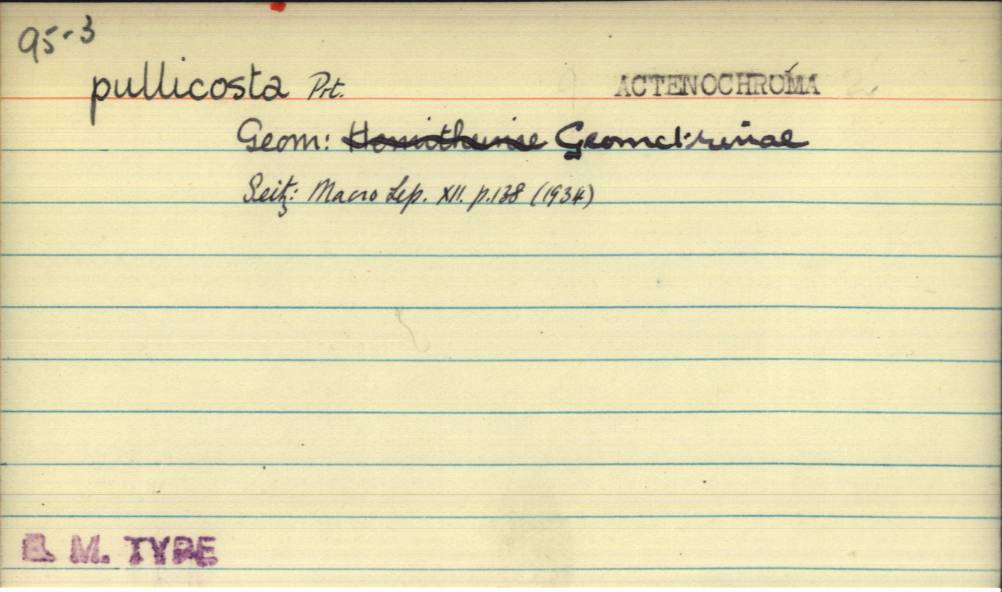 95-3
pullicosta Prt. ACTENOCHROMA
Geom: Hemitheinae Geometrinae
Seitz: Macro Lep. XII. p.138 (1934)
B. M. TYPE